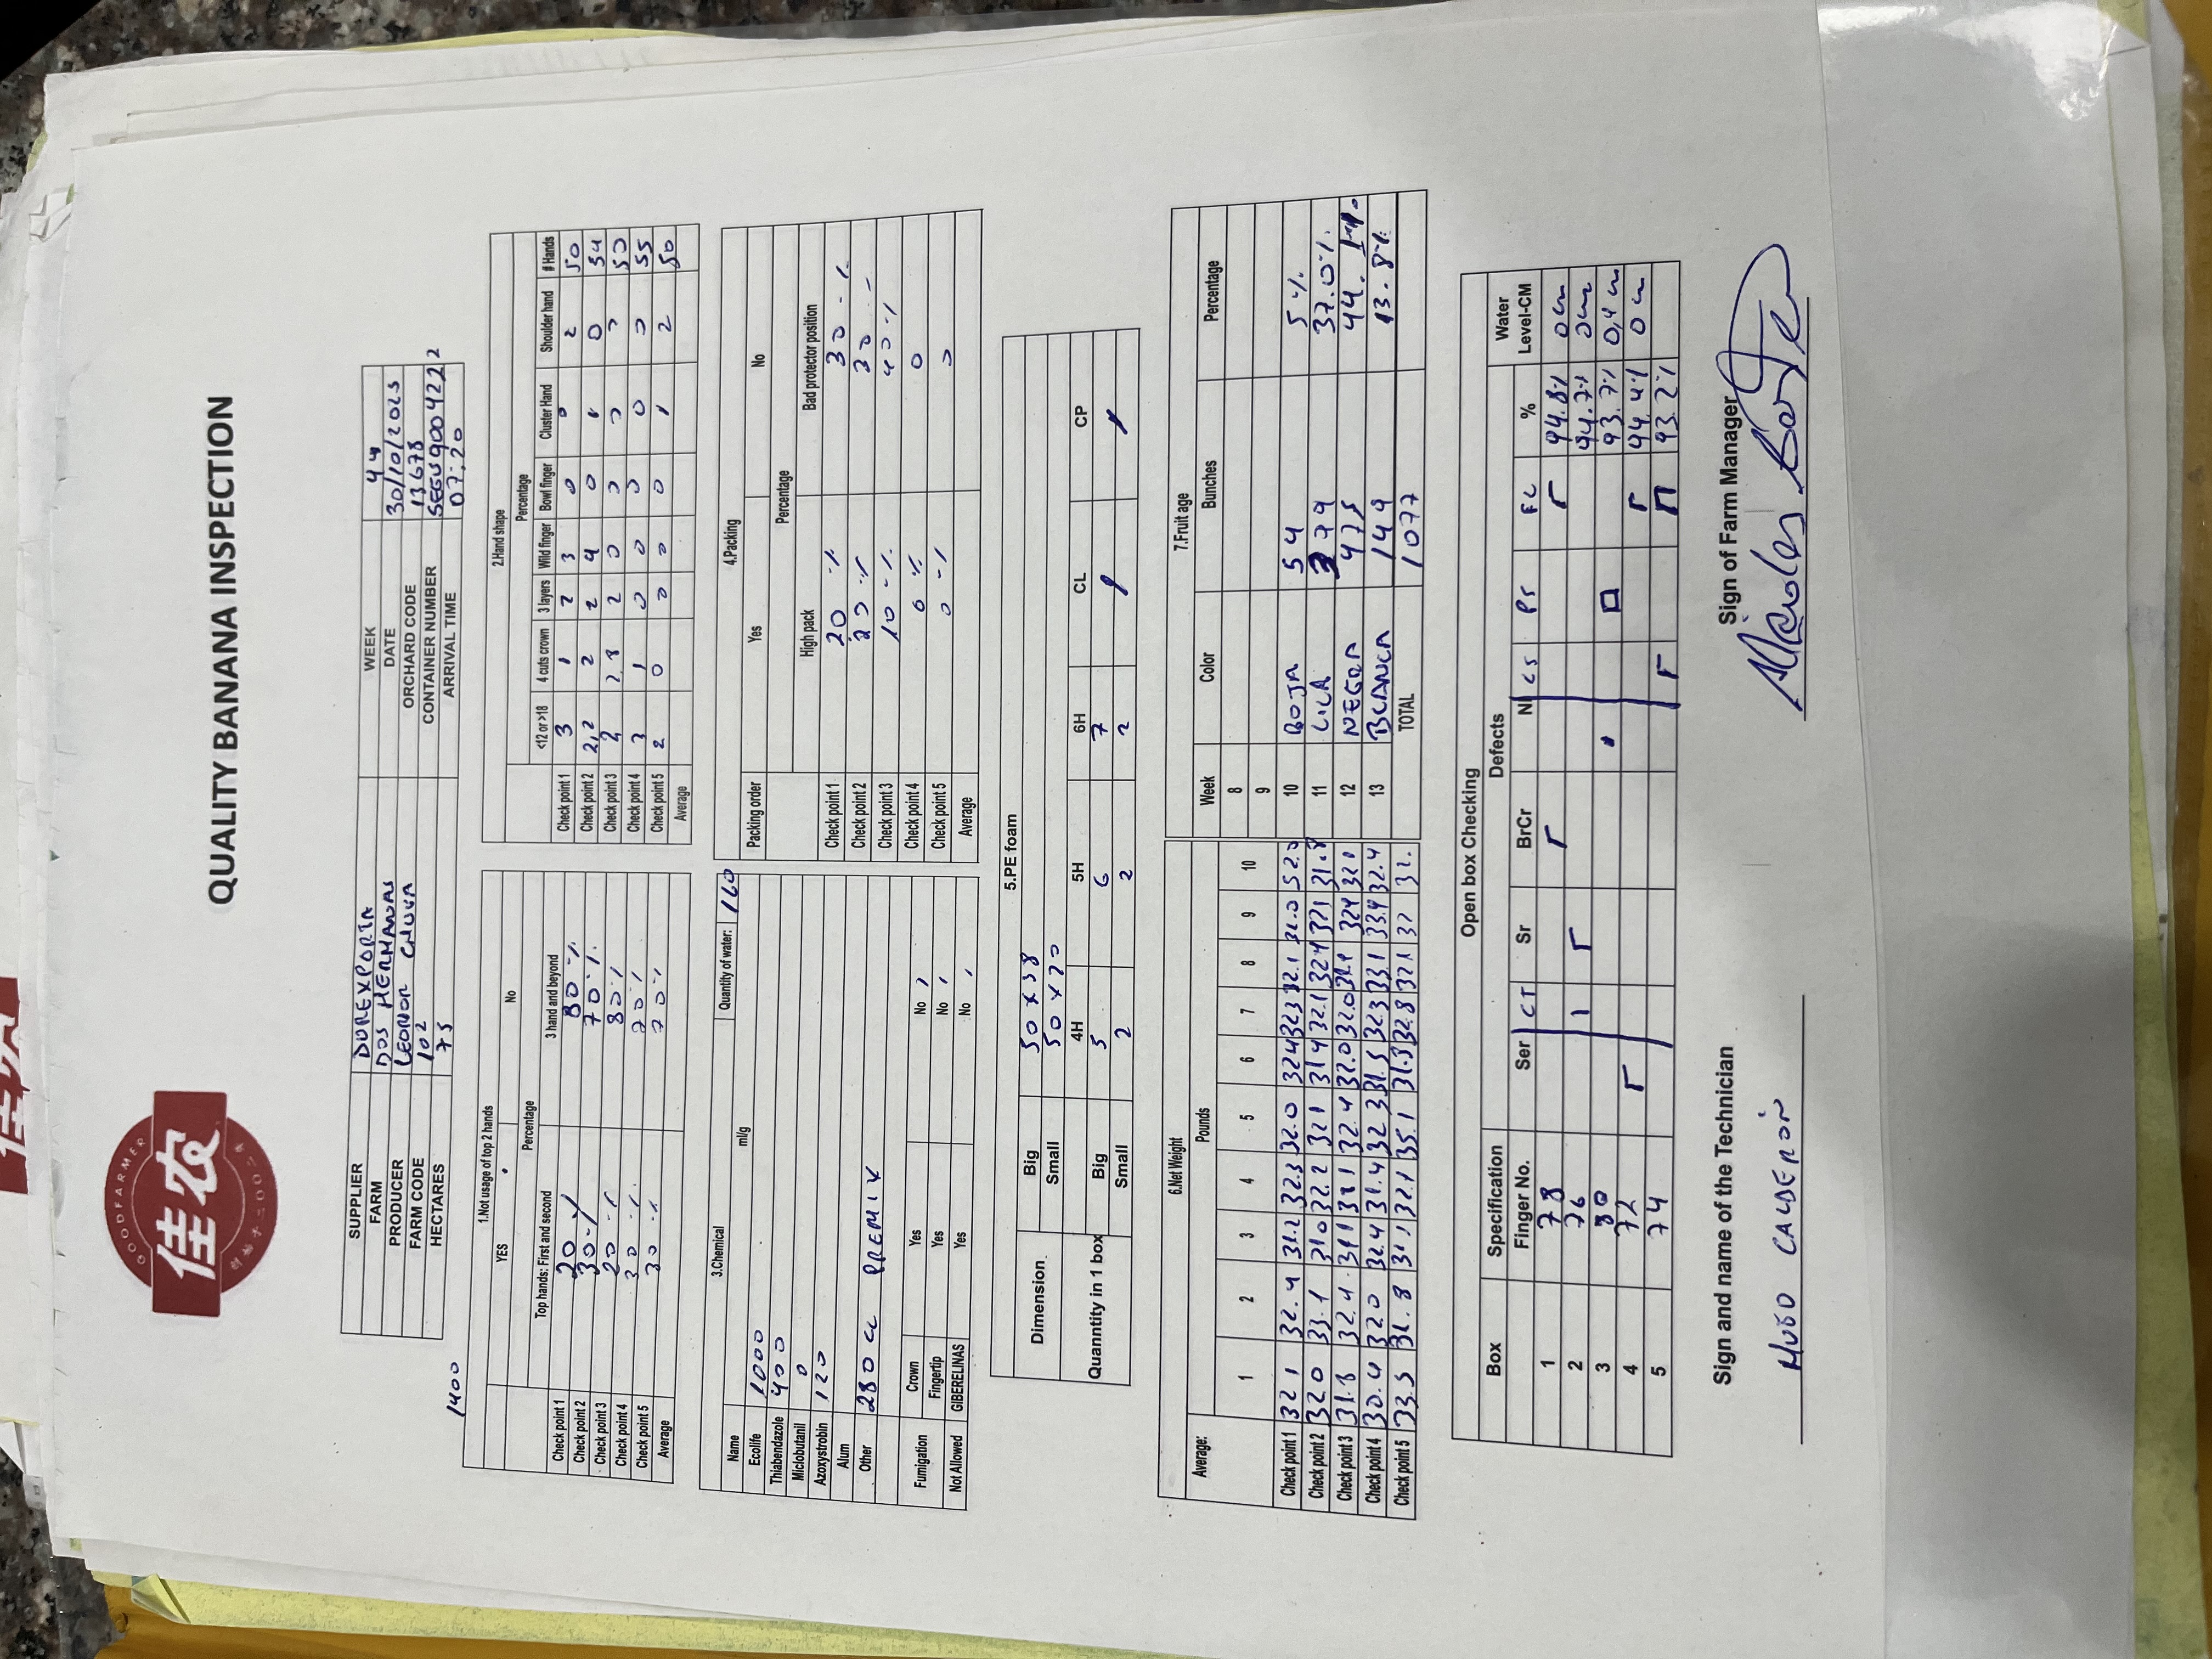 GOODFARMER
佳农
创始于二〇〇二年
QUALITY BANANA INSPECTION
SUPPLIER DUREXPORTA WEEK 44
FARM DOS HERMANAS DATE 30/10/2025
PRODUCER LEONOR CHUVA ORCHARD CODE 13678
FARM CODE 102 CONTAINER NUMBER SEGU9004222 2
HECTARES 75 ARRIVAL TIME 07:20
1400
1.Not usage of top 2 hands
YES No
Percentage
Top hands: First and second 3 hand and beyond
Check point 1 20 % 80 %
Check point 2 30 % 70 %
Check point 3 20 % 80 %
Check point 4 30 % 70 %
Check point 5 30 % 70 %
Average
2.Hand shape
Percentage
<12 or >18 4 cuts crown 3 layers Wild finger Bowl finger Cluster Hand Shoulder hand # Hands
Check point 1 3 1 2 3 0 0 2 50
Check point 2 2,2 2 2 4 0 1 0 54
Check point 3 2 2,8 2 0 0 0 0 50
Check point 4 3 1 0 0 0 0 0 55
Check point 5 2 0 0 0 0 1 2 50
Average
3.Chemical Quantity of water: 160
Name ml/g
Ecolife 1000
Thiabendazole 400
Miclobutanil 0
Azoxystrobin 120
Alum
Other 280 cc PREMIX
Fumigation Crown Yes No /
Fingertip Yes No /
Not Allowed GIBERELINAS Yes No /
4.Packing
Packing order Yes No
Percentage
High pack Bad protector position
Check point 1 20 % 30 %
Check point 2 20 % 30
Check point 3 10 % 40 %
Check point 4 0 % 0
Check point 5 0 % 0
Average
5.PE foam
Dimension Big 50 x 38
Small 50 x 20
4H 5H 6H CL CP
Quanntity in 1 box Big 5 6 7
Small 2 2 2
6.Net Weight
Average: Pounds
1 2 3 4 5 6 7 8 9 10
Check point 1 32 1 32.4 31.2 32.3 32.0 324 323 32.1 32.0
Check point 2 320 33.1 310 32.2 321 314 32.1 324 321 31.8
Check point 3 31.8 32.4 311 32.4 32.0 32.0 324 321
Check point 4 30.4 320 32.4 31.4 32 3 31.5 323 33.1 33.4 32.4
Check point 5 33.5 31.8 31.1 32.1 35.1 31.3 32.8 321 32 32.
7.Fruit age
Week Color Bunches Percentage
8
9
10 ROJA 54 5 %
11 LILA 379 37.0%
12 NEGRA 475 44. 1%
13 BLANCA 149 13.8%
TOTAL 1077
Open box Checking
Box Specification Defects Water
Finger No. Ser CT Sr BrCr N CS PS FL % Level-CM
1 78 94.8% 0cm
2 76 94.7% 0cm
3 80 93.7% 0,4 cm
4 72 94.4% 0 cm
5 74 93.2%
Sign and name of the Technician Sign of Farm Manager
HUGO CALDERÓN